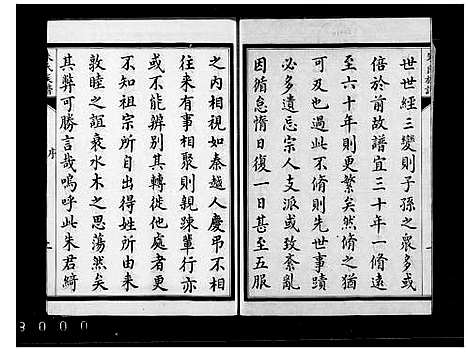 世世經三變則子孫之衆多或
倍於前故譜宜三十年一脩遠
至六十年則更繁矣然脩之猶
必多遺忘不脩則先世事蹟
宗人支派或致紊亂
因循怠惰日復一日甚至五服
之內相視如秦越人慶弔不相
往來有事相聚則親疎輩行亦
或不能辨別其轉徙他者更
不知祖宗所自出得姓所由來
敦睦之誼衰水木之思蕩然矣
其弊可勝言哉嗚呼此朱君綺
序
8000